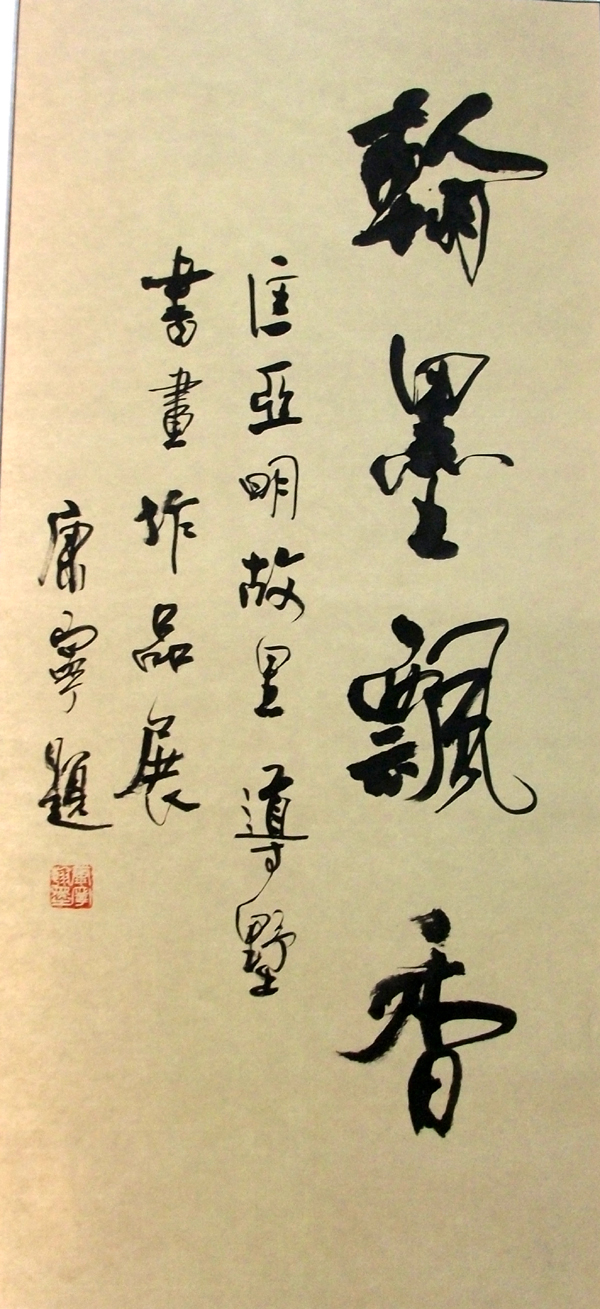 翰墨飄香
匡亞明故里導墅
書畫作品展
康寧題